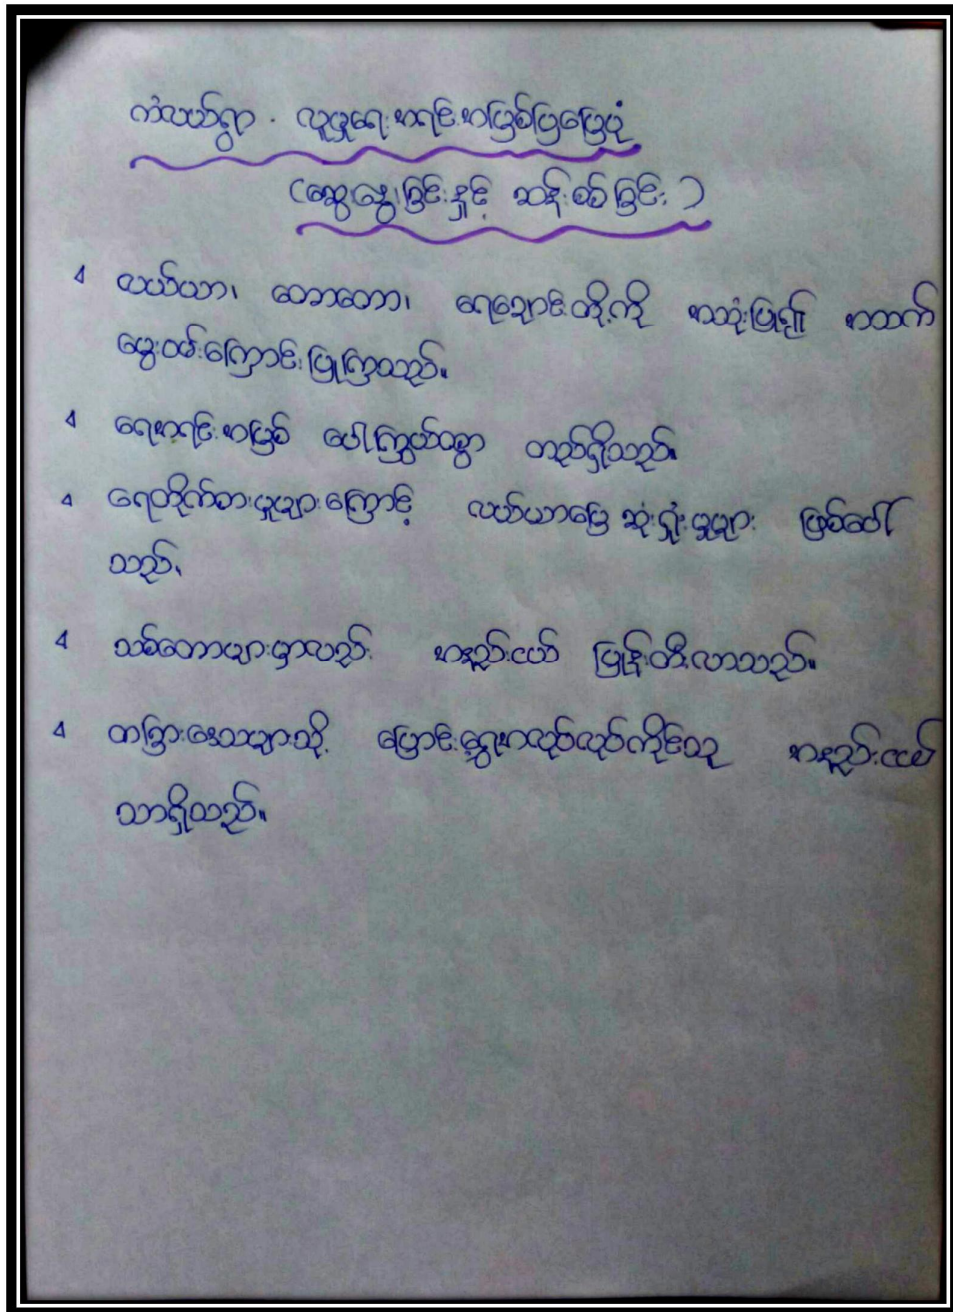 ကံလယ်ရွာ . လူမှုရေးအရင်းအမြစ်ပြမြေပုံ
(ဆွေးနွေးခြင်းနှင့် ဆန်းစစ်ခြင်း)
လယ်ယာ၊ တောတော၊ ရေချောင်းတို့ကို အသုံးပြု၍ အသက်
မွေးဝမ်းကြောင်းပြုကြသည်။
ရေအရင်းအမြစ် ပေါကြွယ်ဝစွာ တည်ရှိသည်။
ရေတိုက်စားမှုများကြောင့် လယ်ယာမြေဆုံးရှုံးမှုများ ဖြစ်ပေါ်
သည်.
သစ်တောများမှာလည်း အနည်းငယ် ပြုန်းတီးလာသည်။
တခြားဒေသများသို့ ပြောင်းရွှေ့အလုပ်လုပ်ကိုင်သူ အနည်းငယ်
သာရှိသည်။